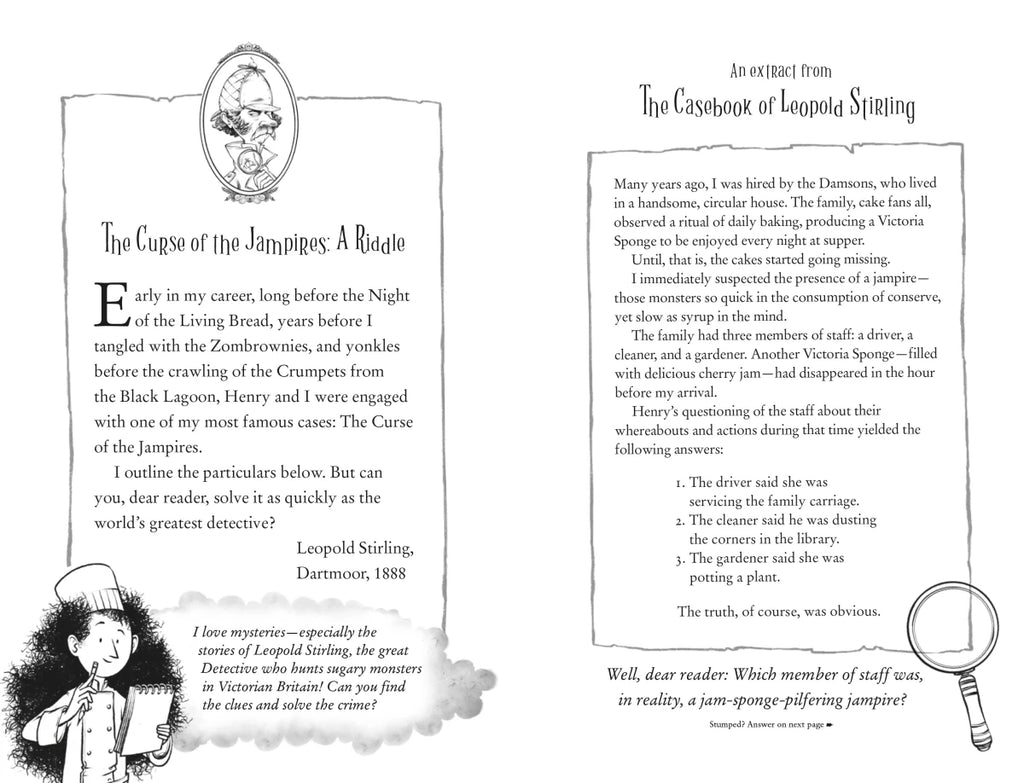 The Curse of the Jampires: A Riddle
Early in my career, long before the Night
of the Living Bread, years before I
tangled with the Zombrownies, and yonkles
before the crawling of the Crumpets from
the Black Lagoon, Henry and I were engaged
with one of my most famous cases: The Curse
of the Jampires.
I outline the particulars below. But can
you, dear reader, solve it as quickly as the
world's greatest detective?
Leopold Stirling,
Dartmoor, 1888
I love mysteries—especially the
stories of Leopold Stirling, the great
Detective who hunts sugary monsters
in Victorian Britain! Can you find
the clues and solve the crime?
An extract from
The Casebook of Leopold Stirling
Many years ago, I was hired by the Damsons, who lived
in a handsome, circular house. The family, cake fans all,
observed a ritual of daily baking, producing a Victoria
Sponge to be enjoyed every night at supper.
Until, that is, the cakes started going missing.
I immediately suspected the presence of a jampire—
those monsters so quick in the consumption of conserve,
yet slow as syrup in the mind.
The family had three members of staff: a driver, a
cleaner, and a gardener. Another Victoria Sponge—filled
with delicious cherry jam—had disappeared in the hour
before my arrival.
Henry's questioning of the staff about their
whereabouts and actions during that time yielded the
following answers:
1. The driver said she was
servicing the family carriage.
2. The cleaner said he was dusting
the corners in the library.
3. The gardener said she was
potting a plant.
The truth, of course, was obvious.
Well, dear reader: Which member of staff was,
in reality, a jam-sponge-pilfering jampire?
Stumped? Answer on next page